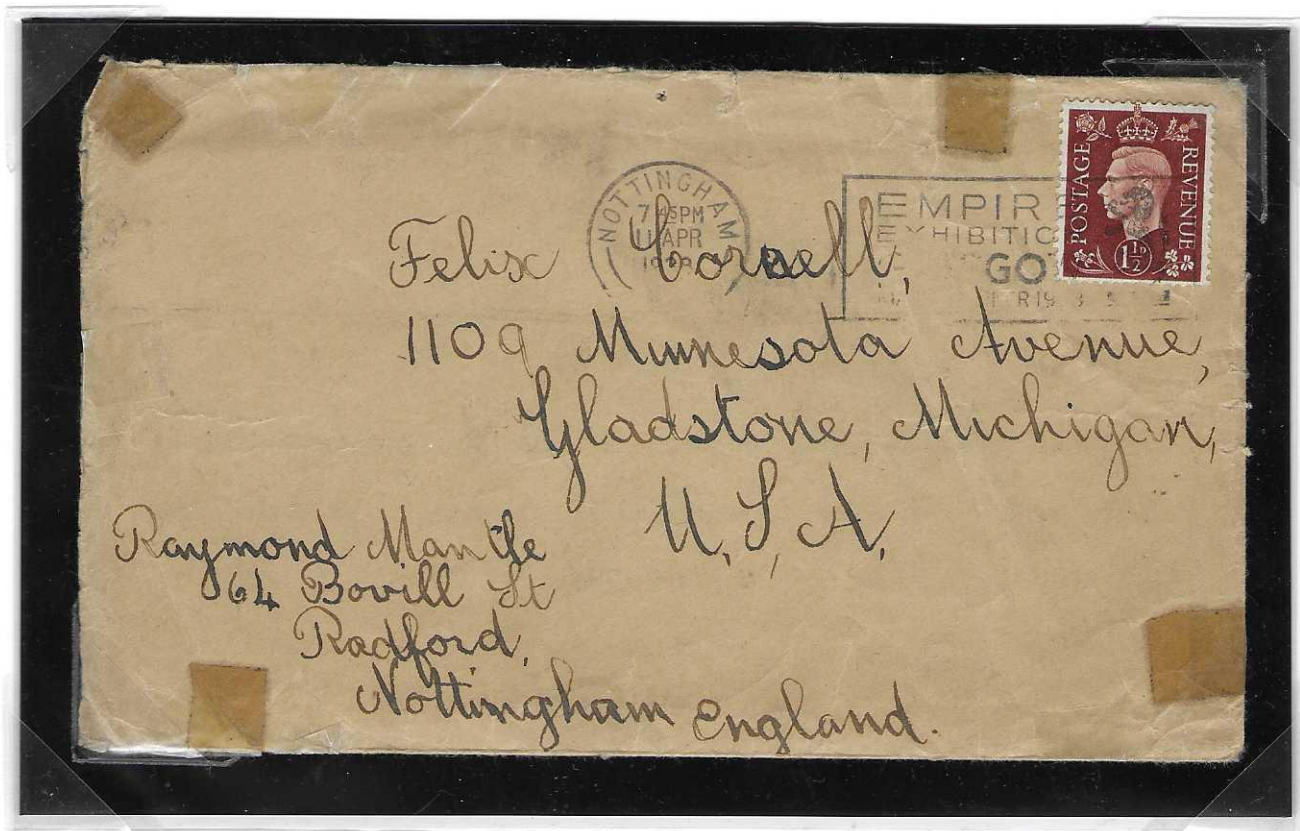 NOTTINGHAM
7 45 PM
11 APR
EMPIR
EXHIBITIO
GO
POSTAGE
REVENUE
1½D
Felix Cornell,
1109 Minnesota Avenue,
Gladstone, Michigan,
U.S.A.
Raymond Mantle
64 Bovill St
Radford,
Nottingham England.